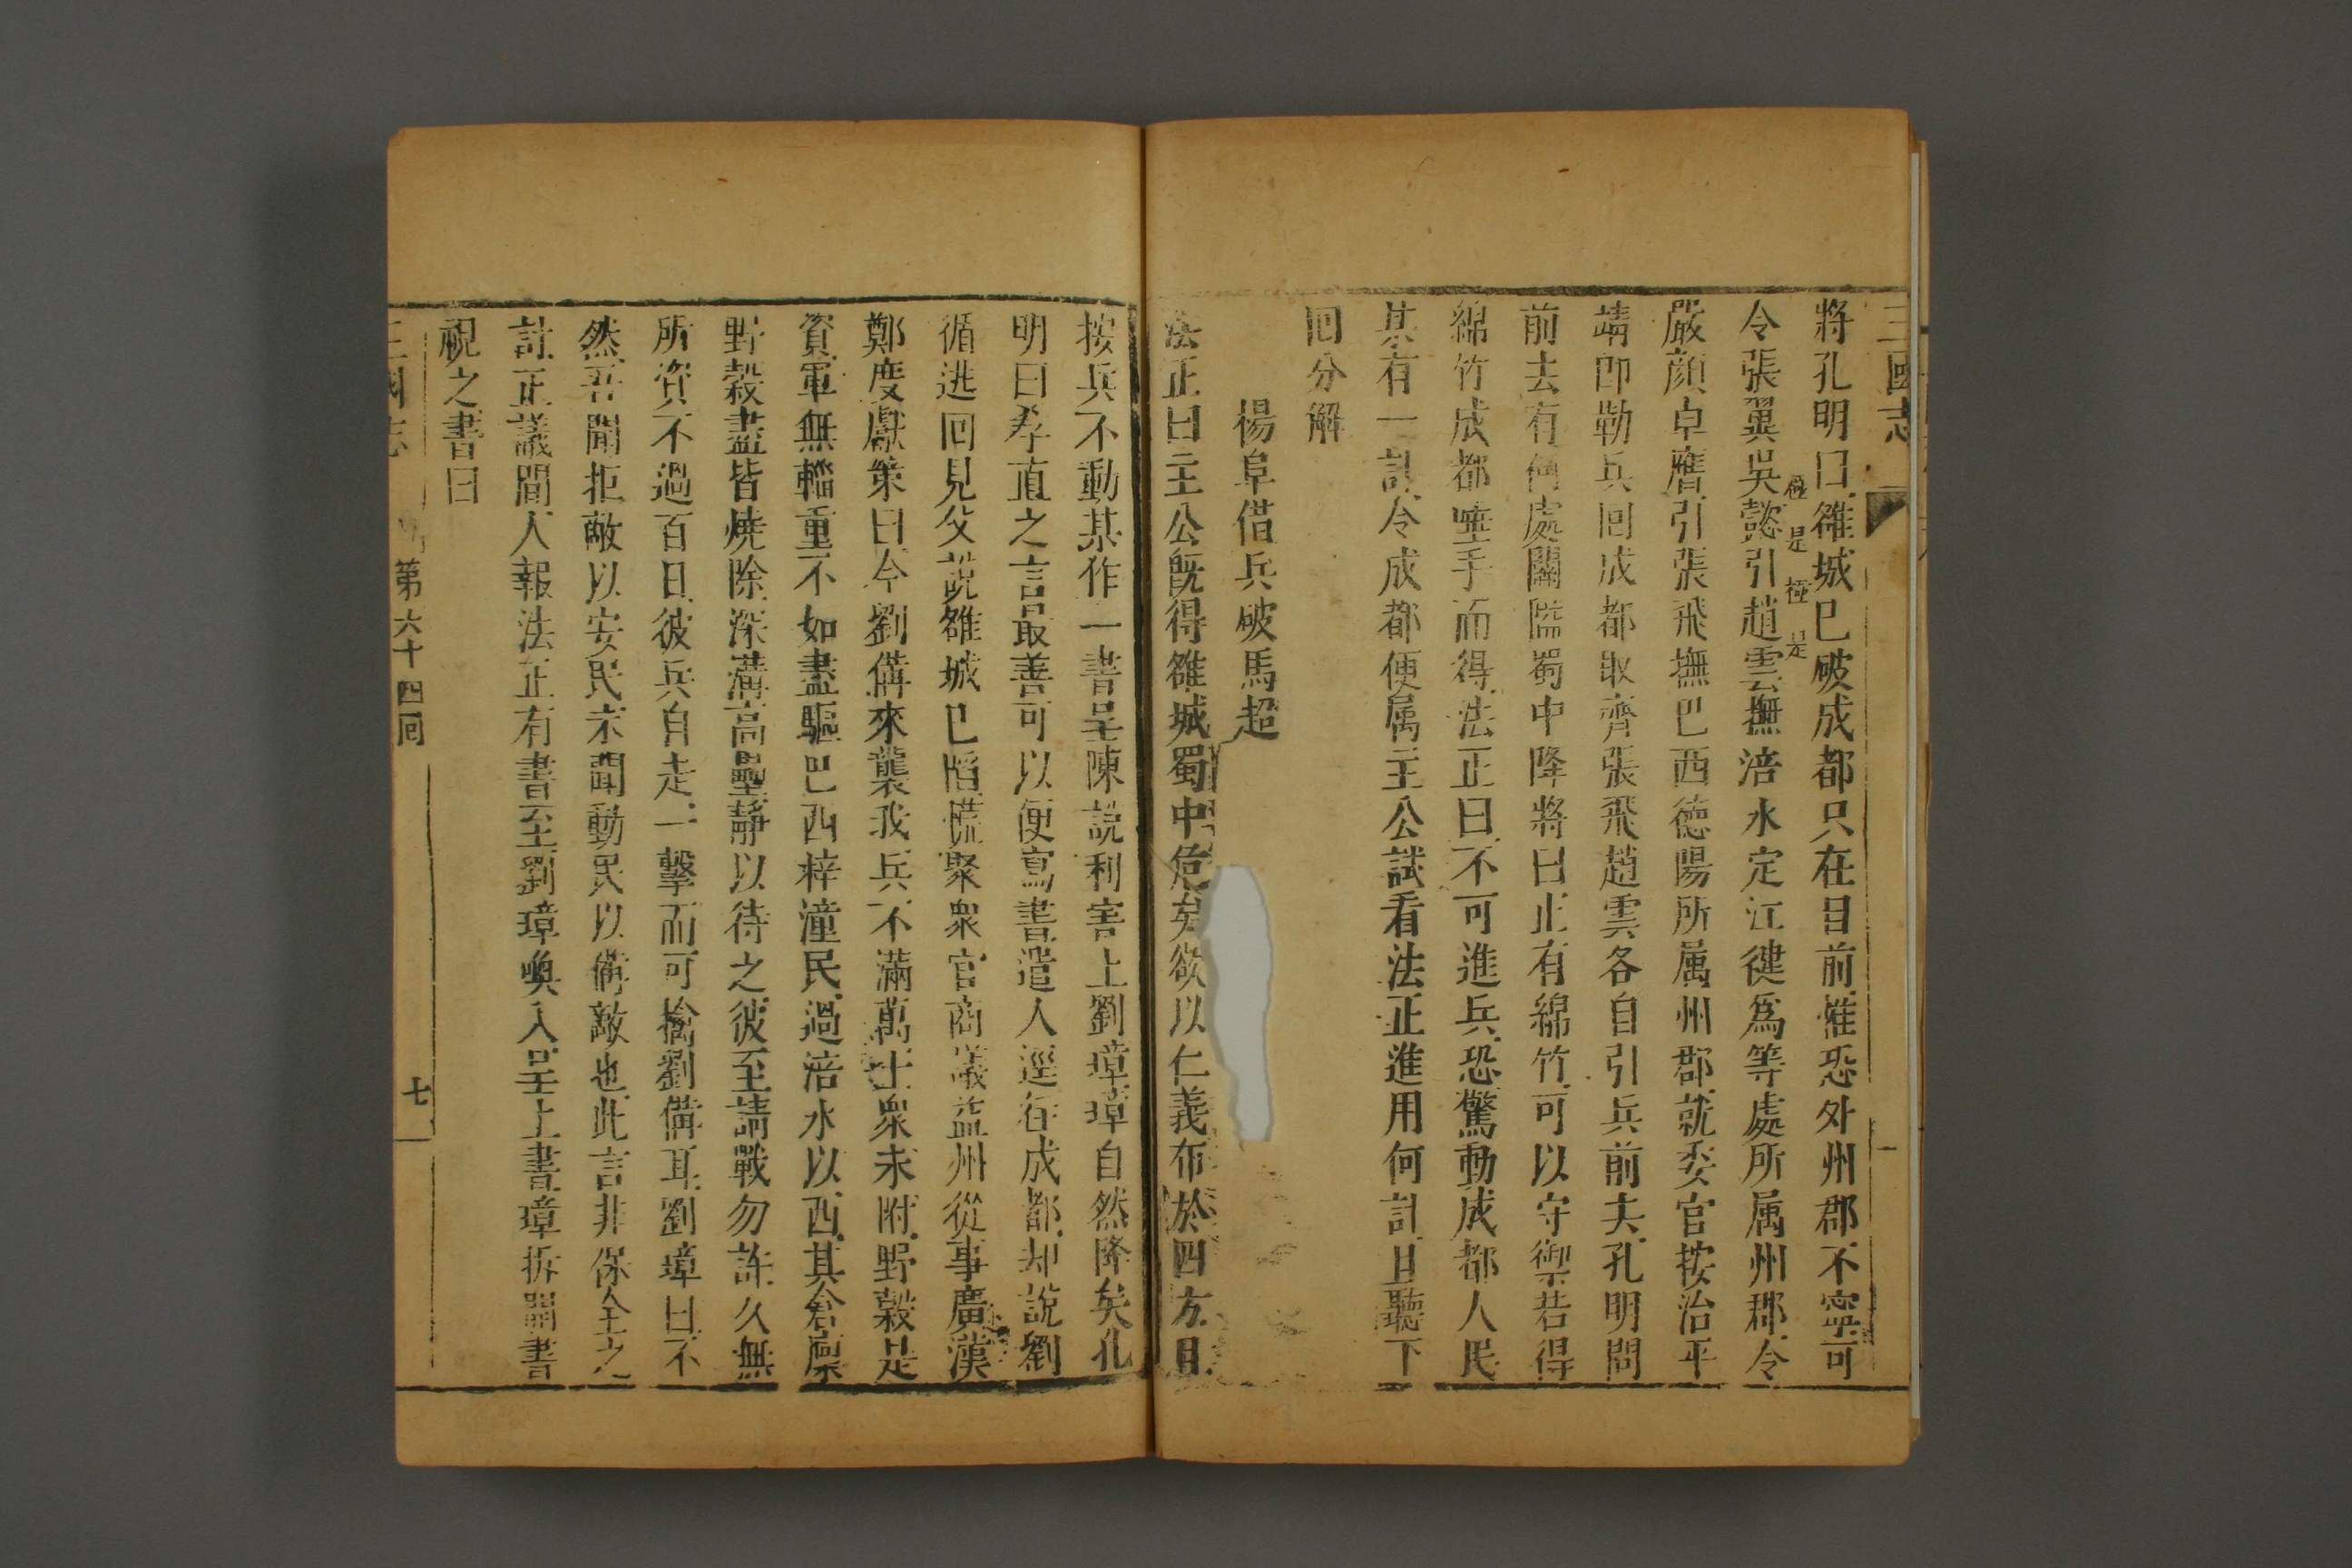 三國志
將孔明曰雒城已破成都只在目前惟恐外州郡不寧可
令張翼吳懿引趙雲撫涪水定江徤爲等處所属州郡令
極是極是
嚴顔卓膺引張飛撫巴西德陽所属州郡就委官按治平
靖即勒兵回成都取齊張飛趙雲各自引兵前去孔明問
前去有何處關隘蜀中降將曰止有綿竹可以守禦若得
綿竹成都唾手而得法正曰不可進兵恐驚動成都人民
某有一計令成都便属主公試看法正進用何計且聽下
回分解
楊阜借兵破馬超
法正曰主公既得雒城蜀中危矣欲以仁義布於四方且
按兵不動某作一書呈陳說利害上劉璋璋自然降矣孔
明曰孝直之言最善可以便寫書遣人逕徃成都却說劉
循逃回見父說雒城已陷慌聚眾官商議益州從事廣漢
鄭度獻策曰今劉備來襲我兵不滿萬士衆未附野穀是
資軍無輜重不如盡驅巴西梓潼民過涪水以西其倉廩
野穀盡皆燒除深溝高壘靜以待之彼至請戰勿許久無
所資不過百日彼兵自走一擊而可擒劉備耳劉璋曰不
然吾聞拒敵以安民未聞動民以備敵也此言非保全之
計正議間人報法正有書至劉璋喚入呈上書璋拆開書
視之書曰
三國志
第六十四回
七